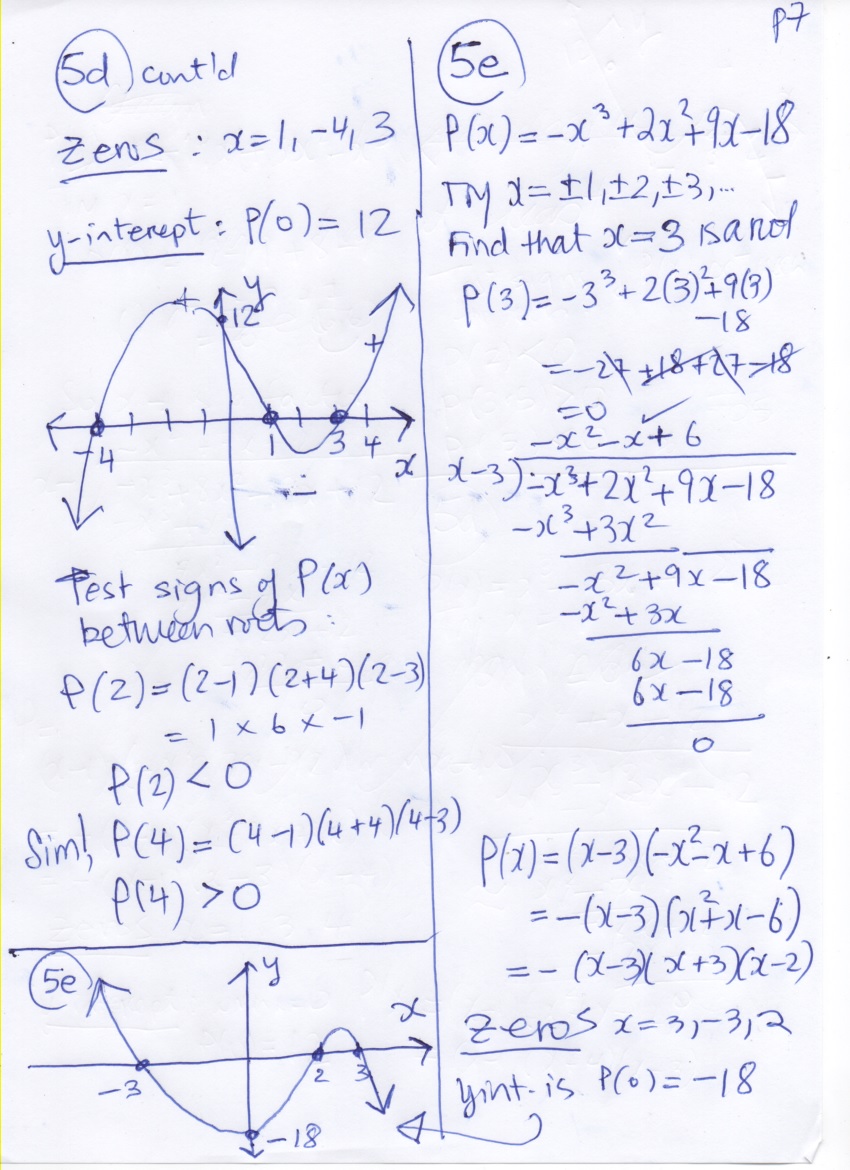 p7
5d cont'd
zeros : x=1, -4, 3
y-interept : P(0) = 12
+
y
12
+
-4
1
3
4
x
-
Test signs of P(x)
between roots :
P(2) = (2-1)(2+4)(2-3)
= 1 × 6 × -1
P(2) < 0
Siml, P(4) = (4-1)(4+4)(4-3)
P(4) > 0
5e
y
x
-3
2
3
-18
5e
P(x) = -x³ + 2x² + 9x - 18
Try x = ±1, ±2, ±3, ...
Find that x = 3 is a root
P(3) = -3³ + 2(3)² + 9(3)
-18
= -27 + 18 + 27 - 18
= 0 ✓
-x² - x + 6
x-3) -x³ + 2x² + 9x - 18
-x³ + 3x²
-x² + 9x - 18
-x² + 3x
6x - 18
6x - 18
0
P(x) = (x-3)(-x² - x + 6)
= -(x-3)(x² + x - 6)
= - (x-3)(x+3)(x-2)
zeros x = 3, -3, 2
y int. is P(0) = -18